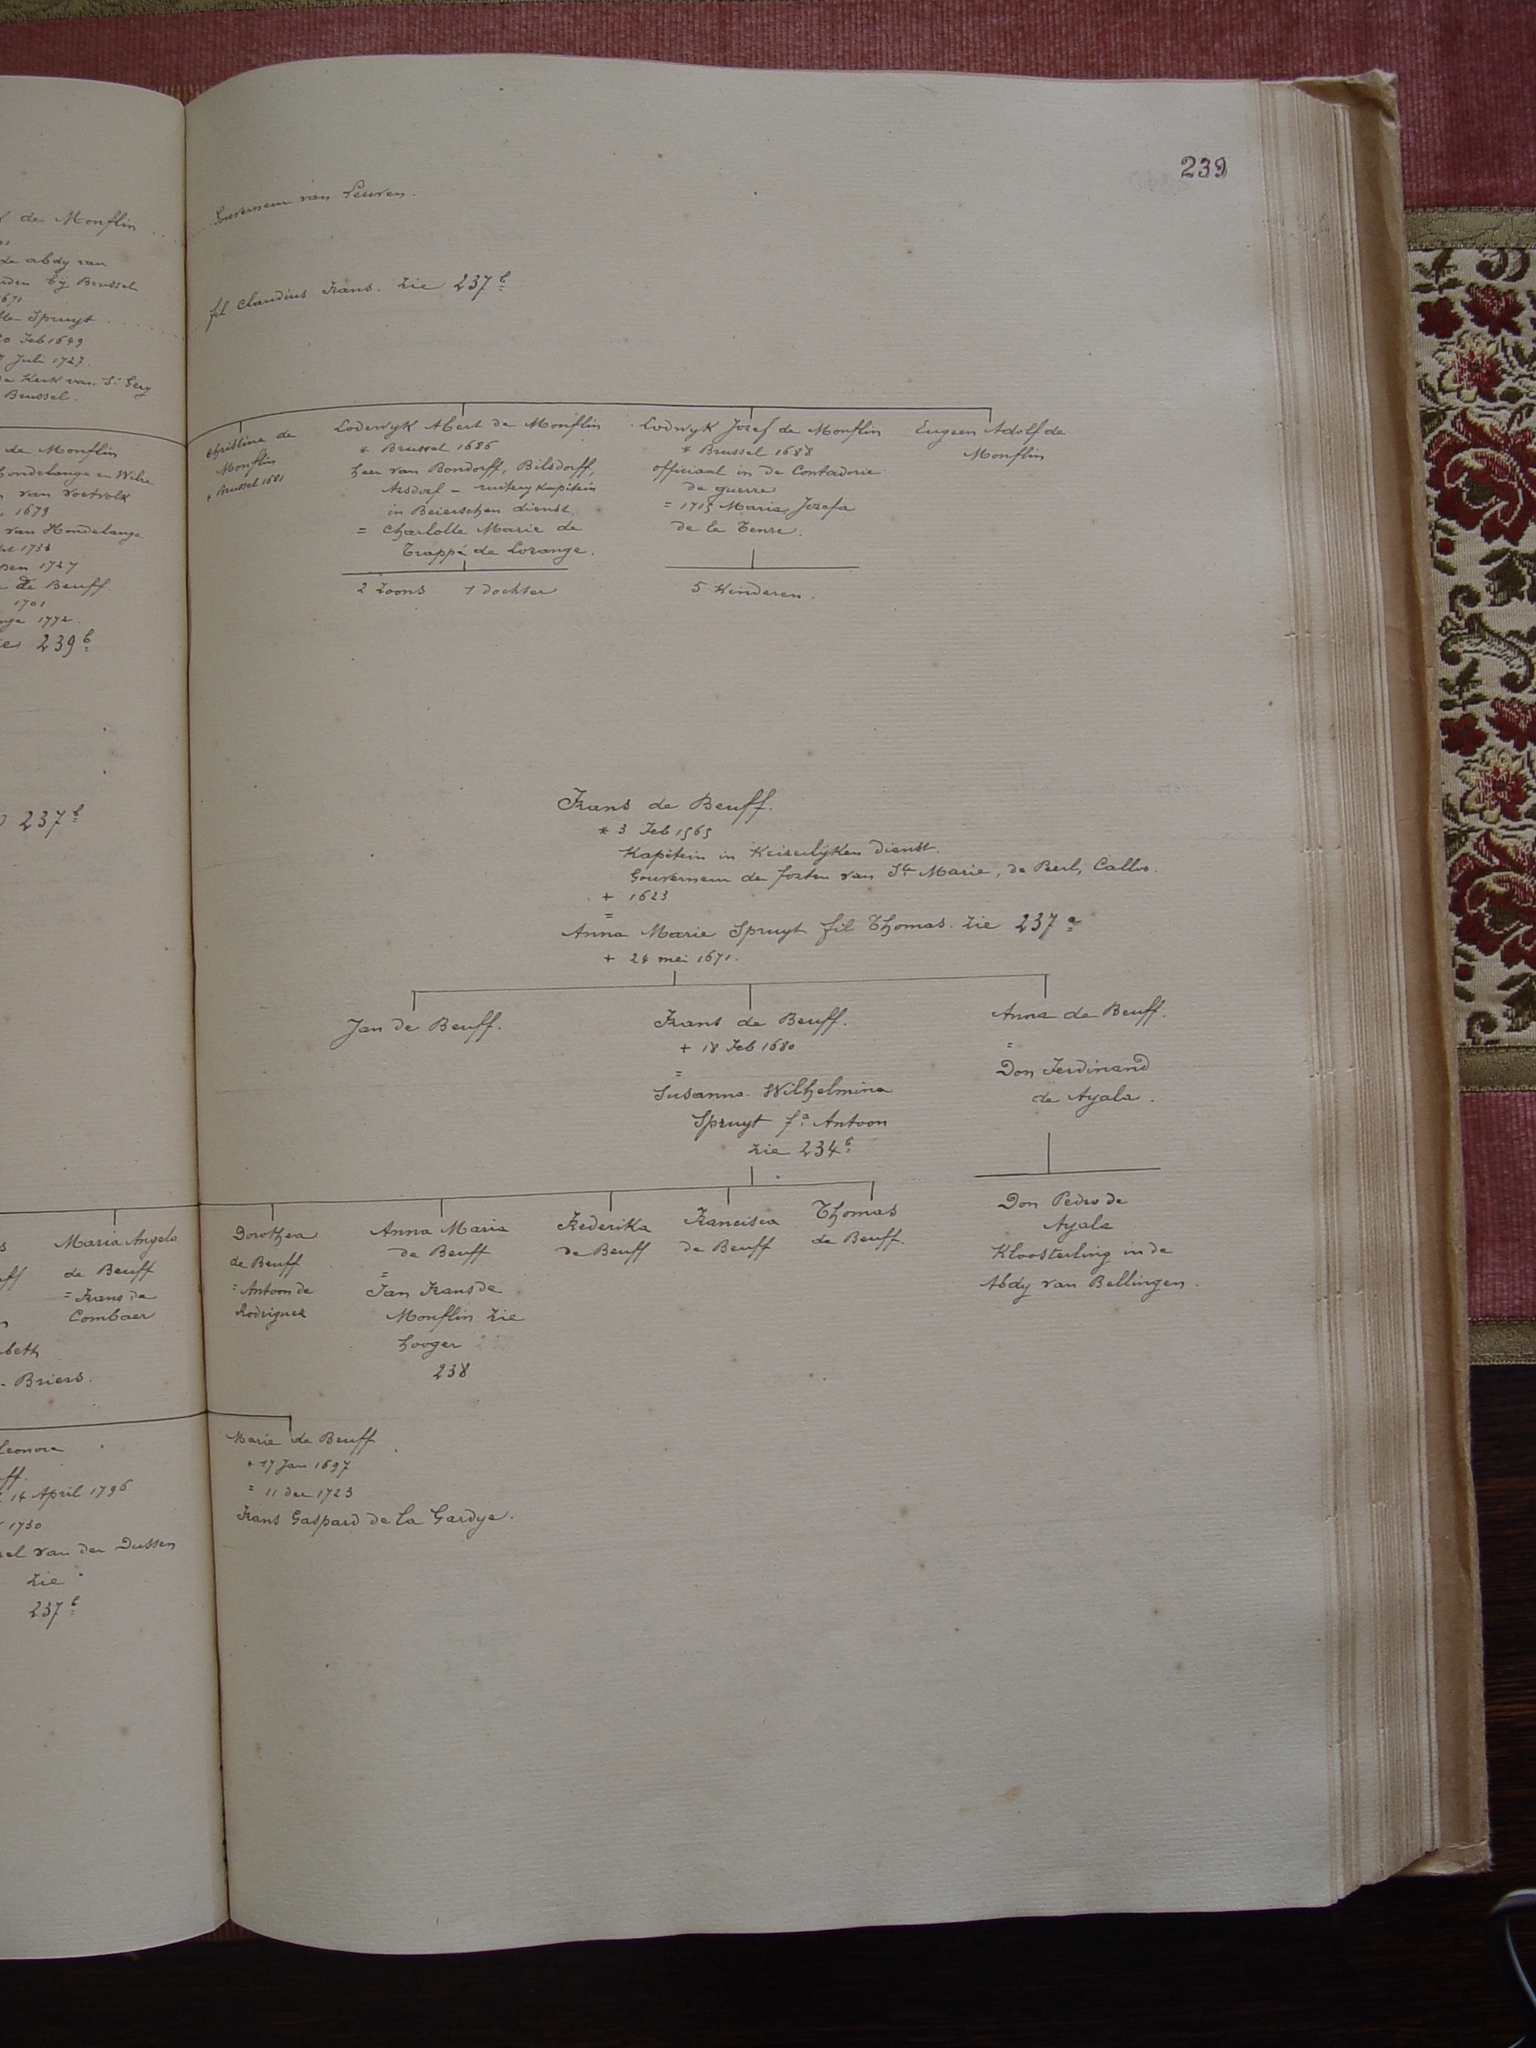 239
de Monflin
de abdy van
bij Brussel
1671
Spruyt
20 Feb 1649
7 Juli 1727.
de Kerk van St Gery
Brussel.
de Monflin
Hondelange en
van voetvolk
1679
van Hondelange
1727
de Beuff
1701
1772.
239 b
237 b
Maria Angela
de Beuff
= Frans de
Combaer
Briers.
14 April 1796
1730
van der Dussen
zie
237 b
Gouverneur van Leuven.
fil Claudius Frans. zie 237 b
Christina de
Monflin
+ Brussel 1681
Lodewyk Albert de Monflin
* Brussel 1686
heer van Bondorff, Bilsdorff,
Arsdorf - ruitery kapitein
in Beierschen dienst.
= Charlotte Marie de
Trappé de Lorange.
2 Zoons 1 dochter
Lodwyk Jozef de Monflin
* Brussel 1688
officiaal in de Contadorie
de guerre
= 1715 Maria Jozefa
de le Tenre.
5 Kinderen.
Eugeen Adolf de
Monflin
Frans de Beuff.
* 3 Feb 1565
Kapitein in Keizerlijken dienst.
Gouverneur der forten van Ste Marie, de Perl, Calloo.
+ 1623
=
Anna Marie Spruyt fil Thomas. zie 237 a
+ 24 mei 1671.
Jan de Beuff.
Frans de Beuff.
+ 18 Feb 1680
=
Susanna Wilhelmina
Spruyt fa Antoon
zie 234 b
Anna de Beuff.
=
Don Ferdinand
de Ayala.
Dorothea
de Beuff
= Antoon de
Rodriguez
Anna Maria
de Beuff
=
Jan Frans de
Monflin zie
hooger
238
Frederika
de Beuff
Francisca
de Beuff
Thomas
de Beuff.
Don Pedro de
Ayala
Kloosterling in de
Abdy van Bellingen.
Marie de Beuff
+ 17 Jan 1697
= 11 dec 1723
Frans Gaspard de la Gardye.